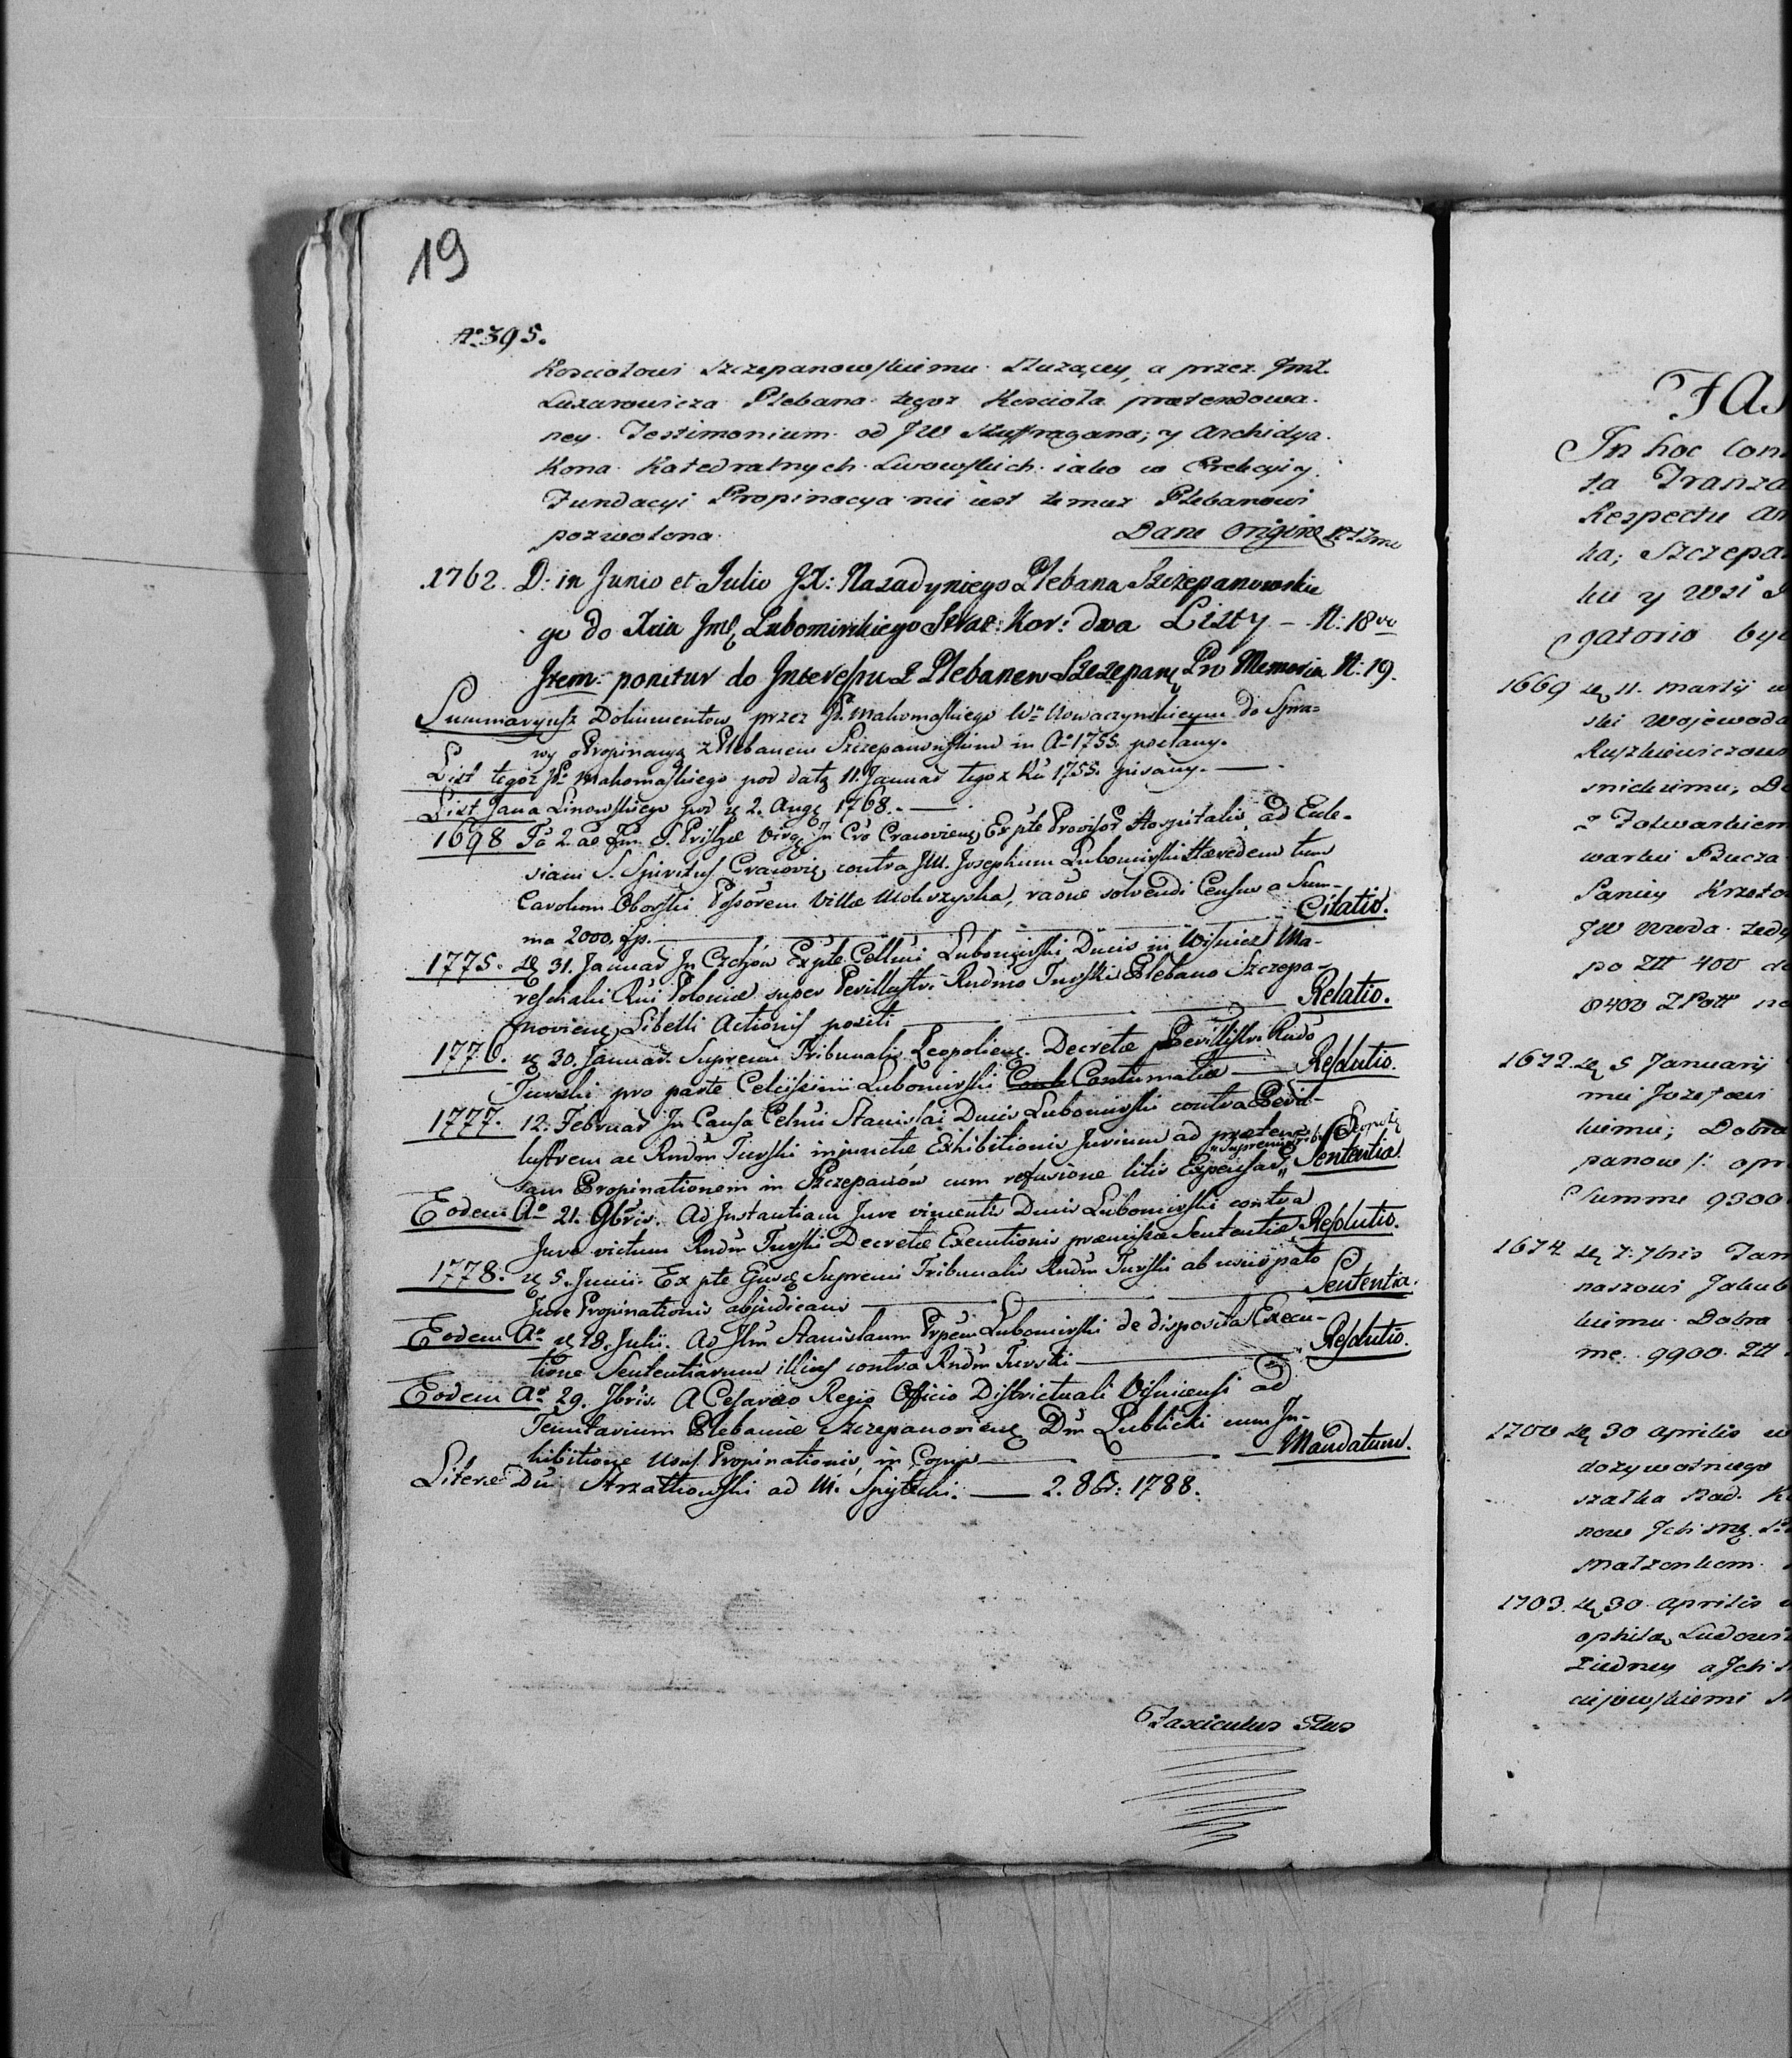 19
No 395.
Kosciołowi Szczepanowskiemu Służącey, a przez JmX.
Lazarowicza Plebana tegoż Kościoła praetendowa-
ney Testimonium od JW Suffragana, y Archidya-
kona Katedralnych Lwowskich iako w Erekcyi y
Fundacyi Propinacya nie iest temuż Plebanowi
pozwolona. Dane Origine
1762. D: in Junio et Julio JX: Nazadyniego Plebana Szczepanowskie
go do Xcia Jmę Lubomirskiego Straż: Kor: dwa Listy – N: 18vo
Item ponitur do Interessu z Plebanem Szczepanę Pro Memoria N: 19.
Summaryusz Dokumentow przez JP. Makomaskiego Wo Nowaczynskiemu do Spra=
wy o Propinacyą z Plebanem Szczepanowskim in Ao 1755. posłany.
List tegoż JP. Makomaskiego pod datą 11. Januar tegoż Ru 1755. pisany. —
List Jana Linowskiego pod 2. Augę 1768. —
1698 Fa 2. ae Fm S. Priscae Virg. In Cro Cracoviens Ex pte Provisor Hospitalis ad Eccle-
siam S. Spiritus Cracovię contra JW. Josephum Lubomirski Haeredem tum
Carolum Oborski Possorem Villae Mokrzyska, raone solvendi Census a Sum-
ma 2000. fp. — Citatio.
1775. 31. Januar In Czchów Ex pte Celsmi Lubomirski Ducis in Wisnicz Ma-
reschalci Rni Poloniae super Perillustr. Rndmo Turski Plebano Szczepa-
noviens Libelli Actionis positi — Relatio.
1776. 30. Januar. Supremi Tribunalis Leopoliens. Decretae Perillustri Rndo
Turski pro parte Celsissimi Lubomirski Contumatiae — Resolutio.
1777. 12. Februar In Causa Celsmi Stanislai Ducis Lubomirski contra Peril-
lustrem ac Rndm Turski injunctae Exhibitionis Jurium ad praeten-
sam Propinationem in Szczepanów cum refusione litis Expensar. Supremi Trib. Leopol. Sententia.
Eodem Ao 21. 9bris. Ad Instantiam Jure vincentis Ducis Lubomirski contra
Jure victum Rndm Turski Decretae Executionis praemissae Sententiae. Resolutio.
1778. 5. Junii. Ex pte Ejusd Supremi Tribunalis Rndm Turski ab usurpato
Jure Propinationis abjudicans — Sententia.
Eodem Ao 18. Julii. Ad Jllm Stanislaum Prpem Lubomirski de disposita Execu-
tione Sententiarum illius contra Rndm Turski — Resolutio.
Eodem Ao 29. 7bris. A Cesareo Regio Officio Districtuali Visnicensi ad
Tenutarium Plebaniae Szczepanoviens Dm Lublicki cum In-
hibitione Usus Propinationis, in Copia — Mandatum.
Literae Dni Strzałkowski ad M. Spytecki. — 2. 8br: 1788.
Fasciculus 5tus
FAS
In hoc
ta Tranza
Respectu
ka; Szczepa
kie y Wsi
gatorio
1669 11. Martij
ski Wojewoda
Ruszkiewiczowi
z Folwarkiem
po Złł 400
1672. 5 Januarij
mu Jozefowi
kiemu; Dobra
panow
Summe 9300
1674 7bris Jan
naszowi Jakub
kiemu Dobra
me 9900 Złł
1700 30 Aprilis
dozywotniego
małzonkom
1703. 30 Aprilis